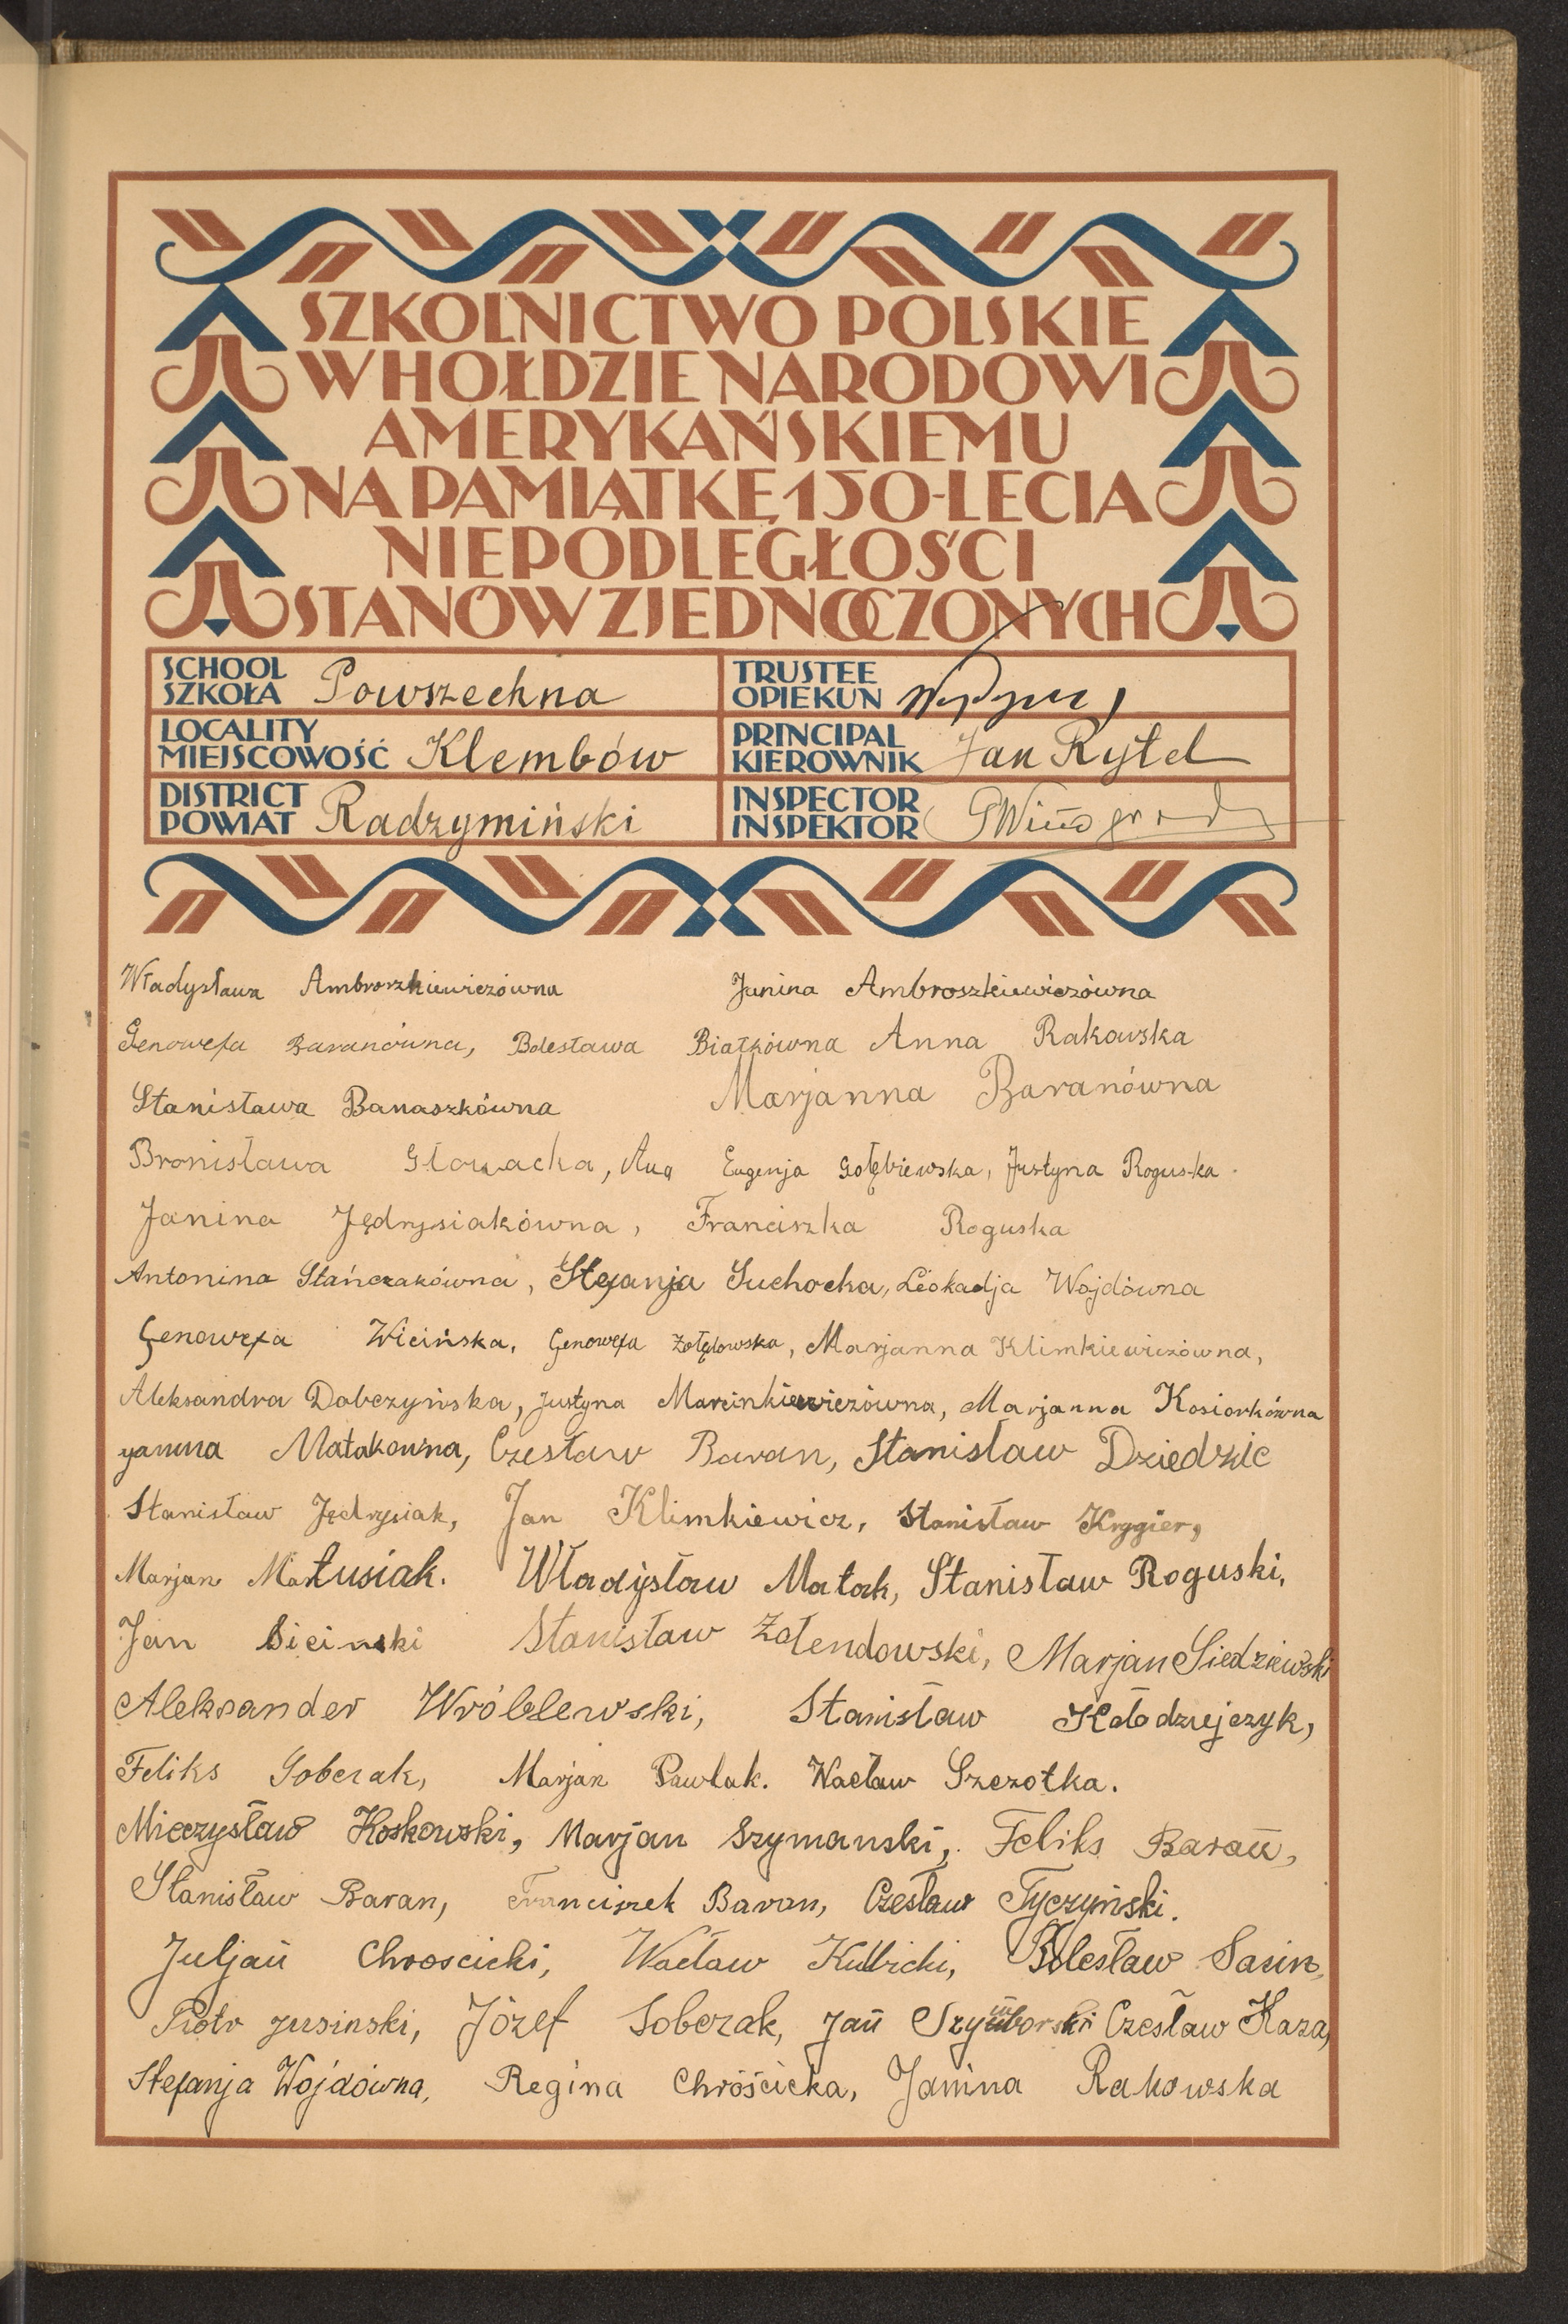 SZKOLNICTWO POLSKIE
W HOŁDZIE NARODOWI
AMERYKAŃSKIEMU
NA PAMIĄTKĘ 150-LECIA
NIEPODLEGŁOŚCI
STANÓW ZJEDNOCZONYCH
SCHOOL
SZKOŁA Powszechna
TRUSTEE
OPIEKUN
LOCALITY
MIEJSCOWOŚĆ Klembów
PRINCIPAL
KIEROWNIK Jan Rytel
DISTRICT
POWIAT Radzymiński
INSPECTOR
INSPEKTOR
Władysława Ambroszkiewiczówna Janina Ambroszkiewiczówna
Genowefa Baranówna, Bolesława Białkówna Anna Rakowska
Stanisława Banaszkówna Marjanna Baranówna
Bronisława Głowacka, Eugenja Gołębiewska, Justyna Roguska.
Janina Jędrysiakówna, Franciszka Roguska
Antonina Stańczakówna, Stefanja Suchocka, Leokadja Wojdówna
Genowefa Wicińska, Genowefa Żołędowska, Marjanna Klimkiewiczówna,
Aleksandra Dobczyńska, Justyna Marcinkiewiczówna, Marjanna Kosiorkówna
Janina Matakowna, Czesław Baran, Stanisław Dziedzic
Stanisław Jędrysiak, Jan Klimkiewicz, Stanisław Kryger,
Marjan Matusiak. Władysław Matak, Stanisław Roguski,
Jan Sicinski Stanisław Żołendowski, Marjan Siedziewski
Aleksander Wróblewski, Stanisław Kołodziejczyk,
Feliks Sobczak, Marjan Pawlak. Wacław Szczotka.
Mieczysław Koskowski, Marjan Szymanski, Feliks Baran,
Stanisław Baran, Franciszek Baran, Czesław Tyczyński.
Juljan Chroscicki, Wacław Kubicki, Bolesław Sasin,
Piotr Jusinski, Józef Sobczak, Jan Szymborski Czesław Kaza,
Stefanja Wojdówna, Regina Chróścicka, Janina Rakowska